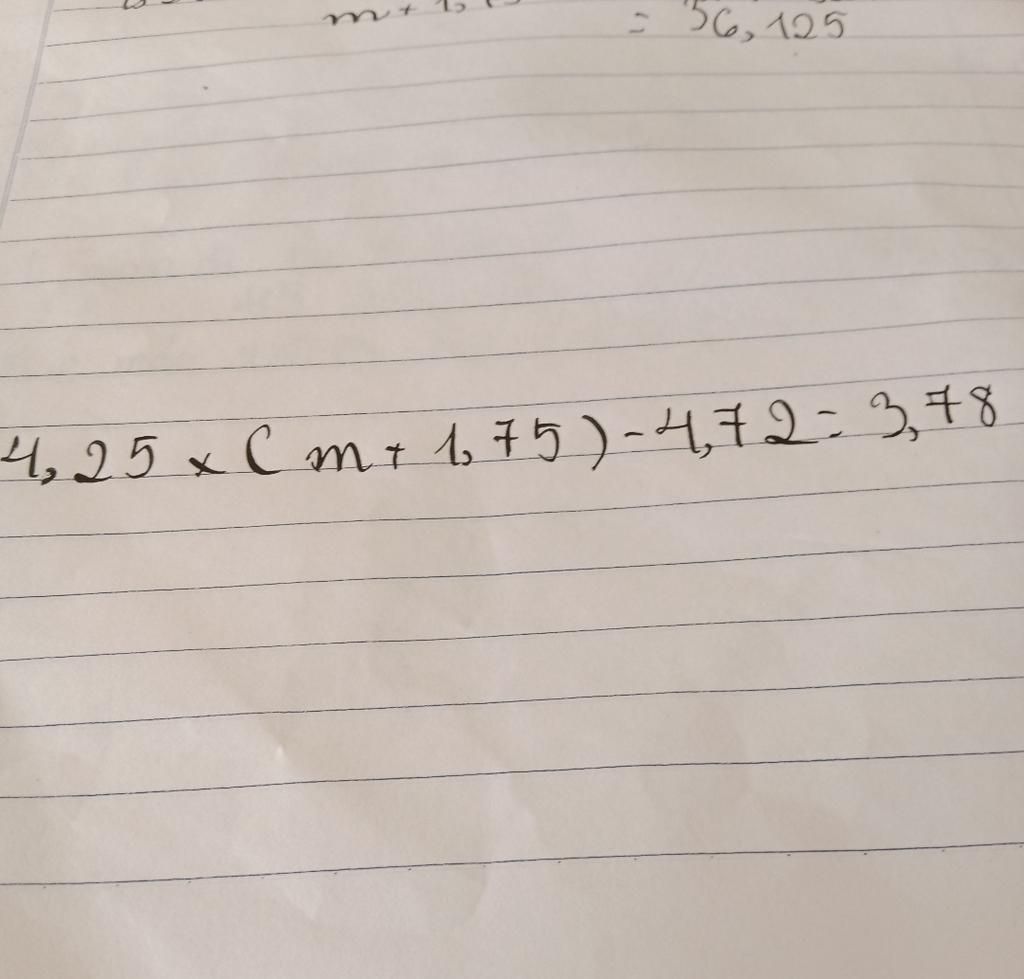 m + 1,
= 56,125
4,25 x ( m + 1,75 ) - 4,72 = 3,78